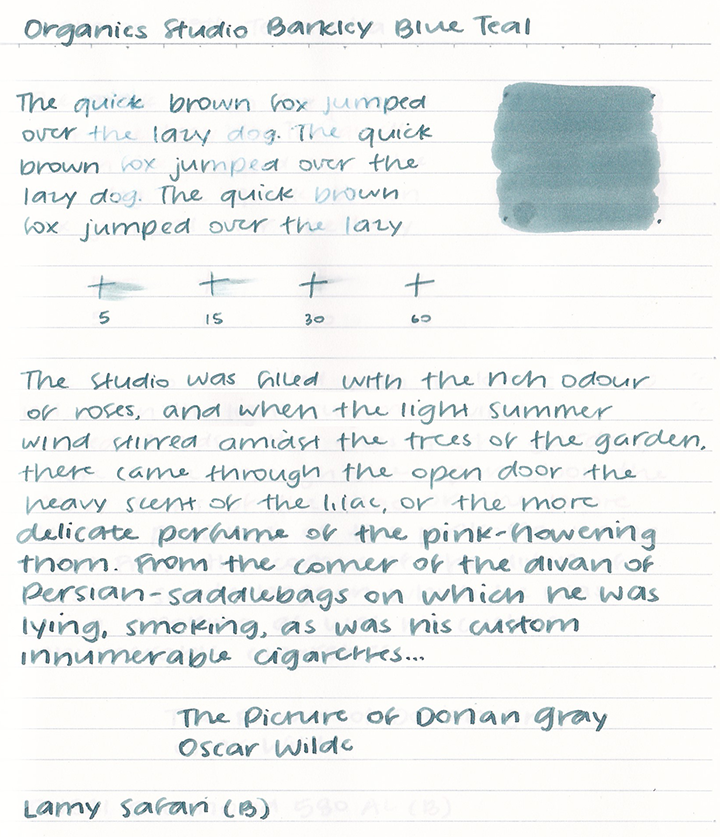 Organics Studio Barkley Blue Teal
The quick brown fox jumped
over the lazy dog. The quick
brown fox jumped over the
lazy dog. The quick brown
fox jumped over the lazy
5 15 30 60
The studio was filled with the rich odour
of roses, and when the light summer
wind stirred amidst the trees of the garden,
there came through the open door the
heavy scent of the lilac, or the more
delicate perfume of the pink-flowering
thorn. From the corner of the divan of
Persian-saddlebags on which he was
lying, smoking, as was his custom
innumerable cigarettes...
The Picture of Dorian Gray
Oscar Wilde
Lamy Safari (B)